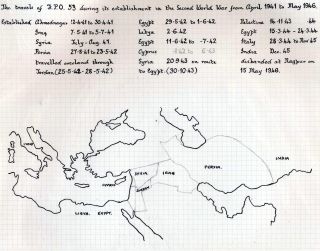 The travels of F.P.O. 53 during its establishment in the Second World War from April 1941 to May 1946.
Established Ahmednagar 12-4-41 to 30-4-41 Egypt 29-5-42 to 1-6-42 Palestine 16-11-43 44
Iraq 7-5-41 to 5-7-41 Libya 2-6-42 Egypt 15-3-44 - 24-3-44
Syria July - Aug. 41 Egypt 11-6-42 to -7-42 Italy 28-3-44 to Nov 45
Persia 27-8-41 to 23-5-42 Cyprus India Dec. 45
travelled overland through Syria 20-9-43 en route disbanded at Nagpur on
Jordan (25-5-42 - 28-5-42) to Egypt (30-10-43) 15 May 1946.
SYRIA IRAQ PERSIA INDIA
CYPRUS
LIBYA EGYPT